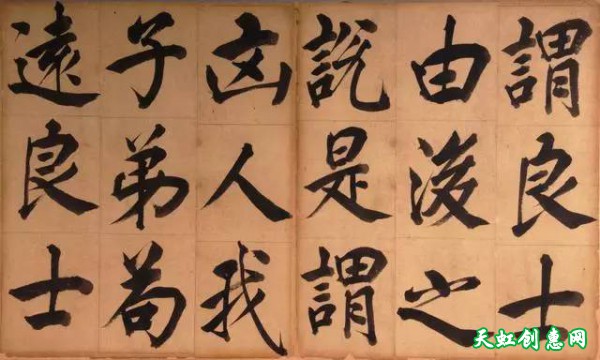 謂良士
由後之
說是謂
凶人我
子弟苟
遠良士
天虹创惠网